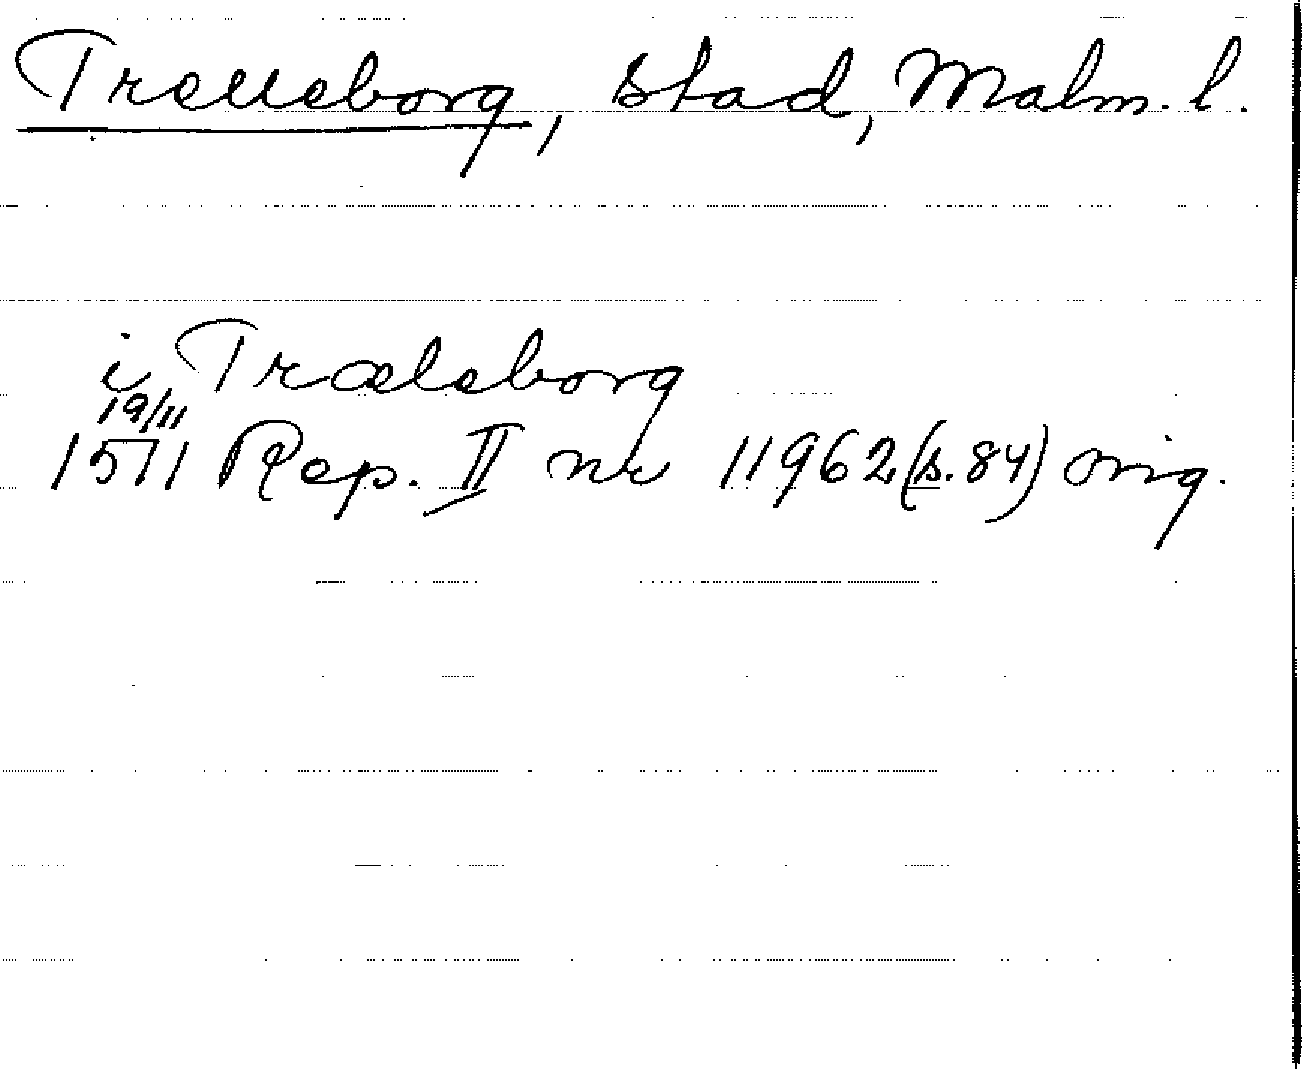 Trelleborg, stad, Malm. l.
i Trælеborg
19/11
1511 Rep. II nr 11962 (s. 84) orig.